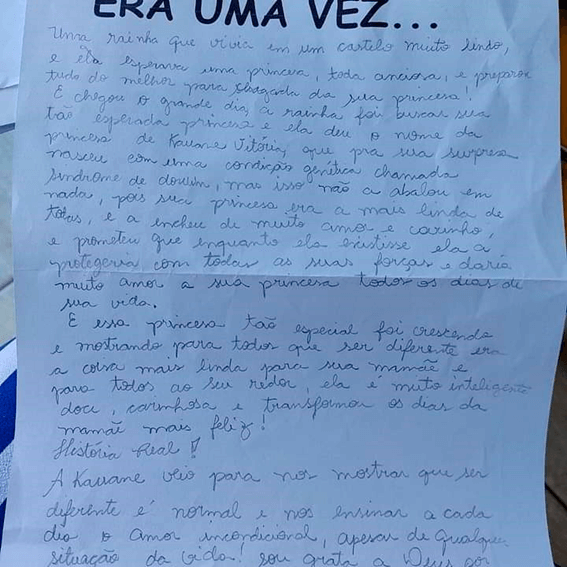 ERA UMA VEZ...
Uma rainha que vivia em um castelo muito lindo,
e ela esperava uma princesa, toda anciosa, e preparou
tudo do melhor para chegada da sua princesa!
E chegou o grande dia, a rainha foi buscar sua
tão esperada princesa e ela deu o nome da
princesa de Kauane Vitória, que pra sua surpresa
nasceu com uma condição genética chamada
síndrome de douwm, mas isso não a abalou em
nada, pois sua princesa era a mais linda de
todas, e a encheu de muito amor e carinho,
e prometeu que enquanto ela existisse ela a
protegeria com todas as suas forças e daria
muito amor a sua princesa todos os dias de
sua vida.
E essa princesa tão especial foi crescendo
e mostrando para todos que ser diferente era
a coisa mais linda para sua mamãe e
para todos ao seu redor, ela é muito inteligente
doce, carinhosa e transformou os dias da
mamãe mais feliz!
História Real!
A Kauane veio para nos mostrar que ser
diferente é normal e nos ensinar a cada
dia o amor incondicional, apesar de qualquer
situação da vida! sou grata a Deus por